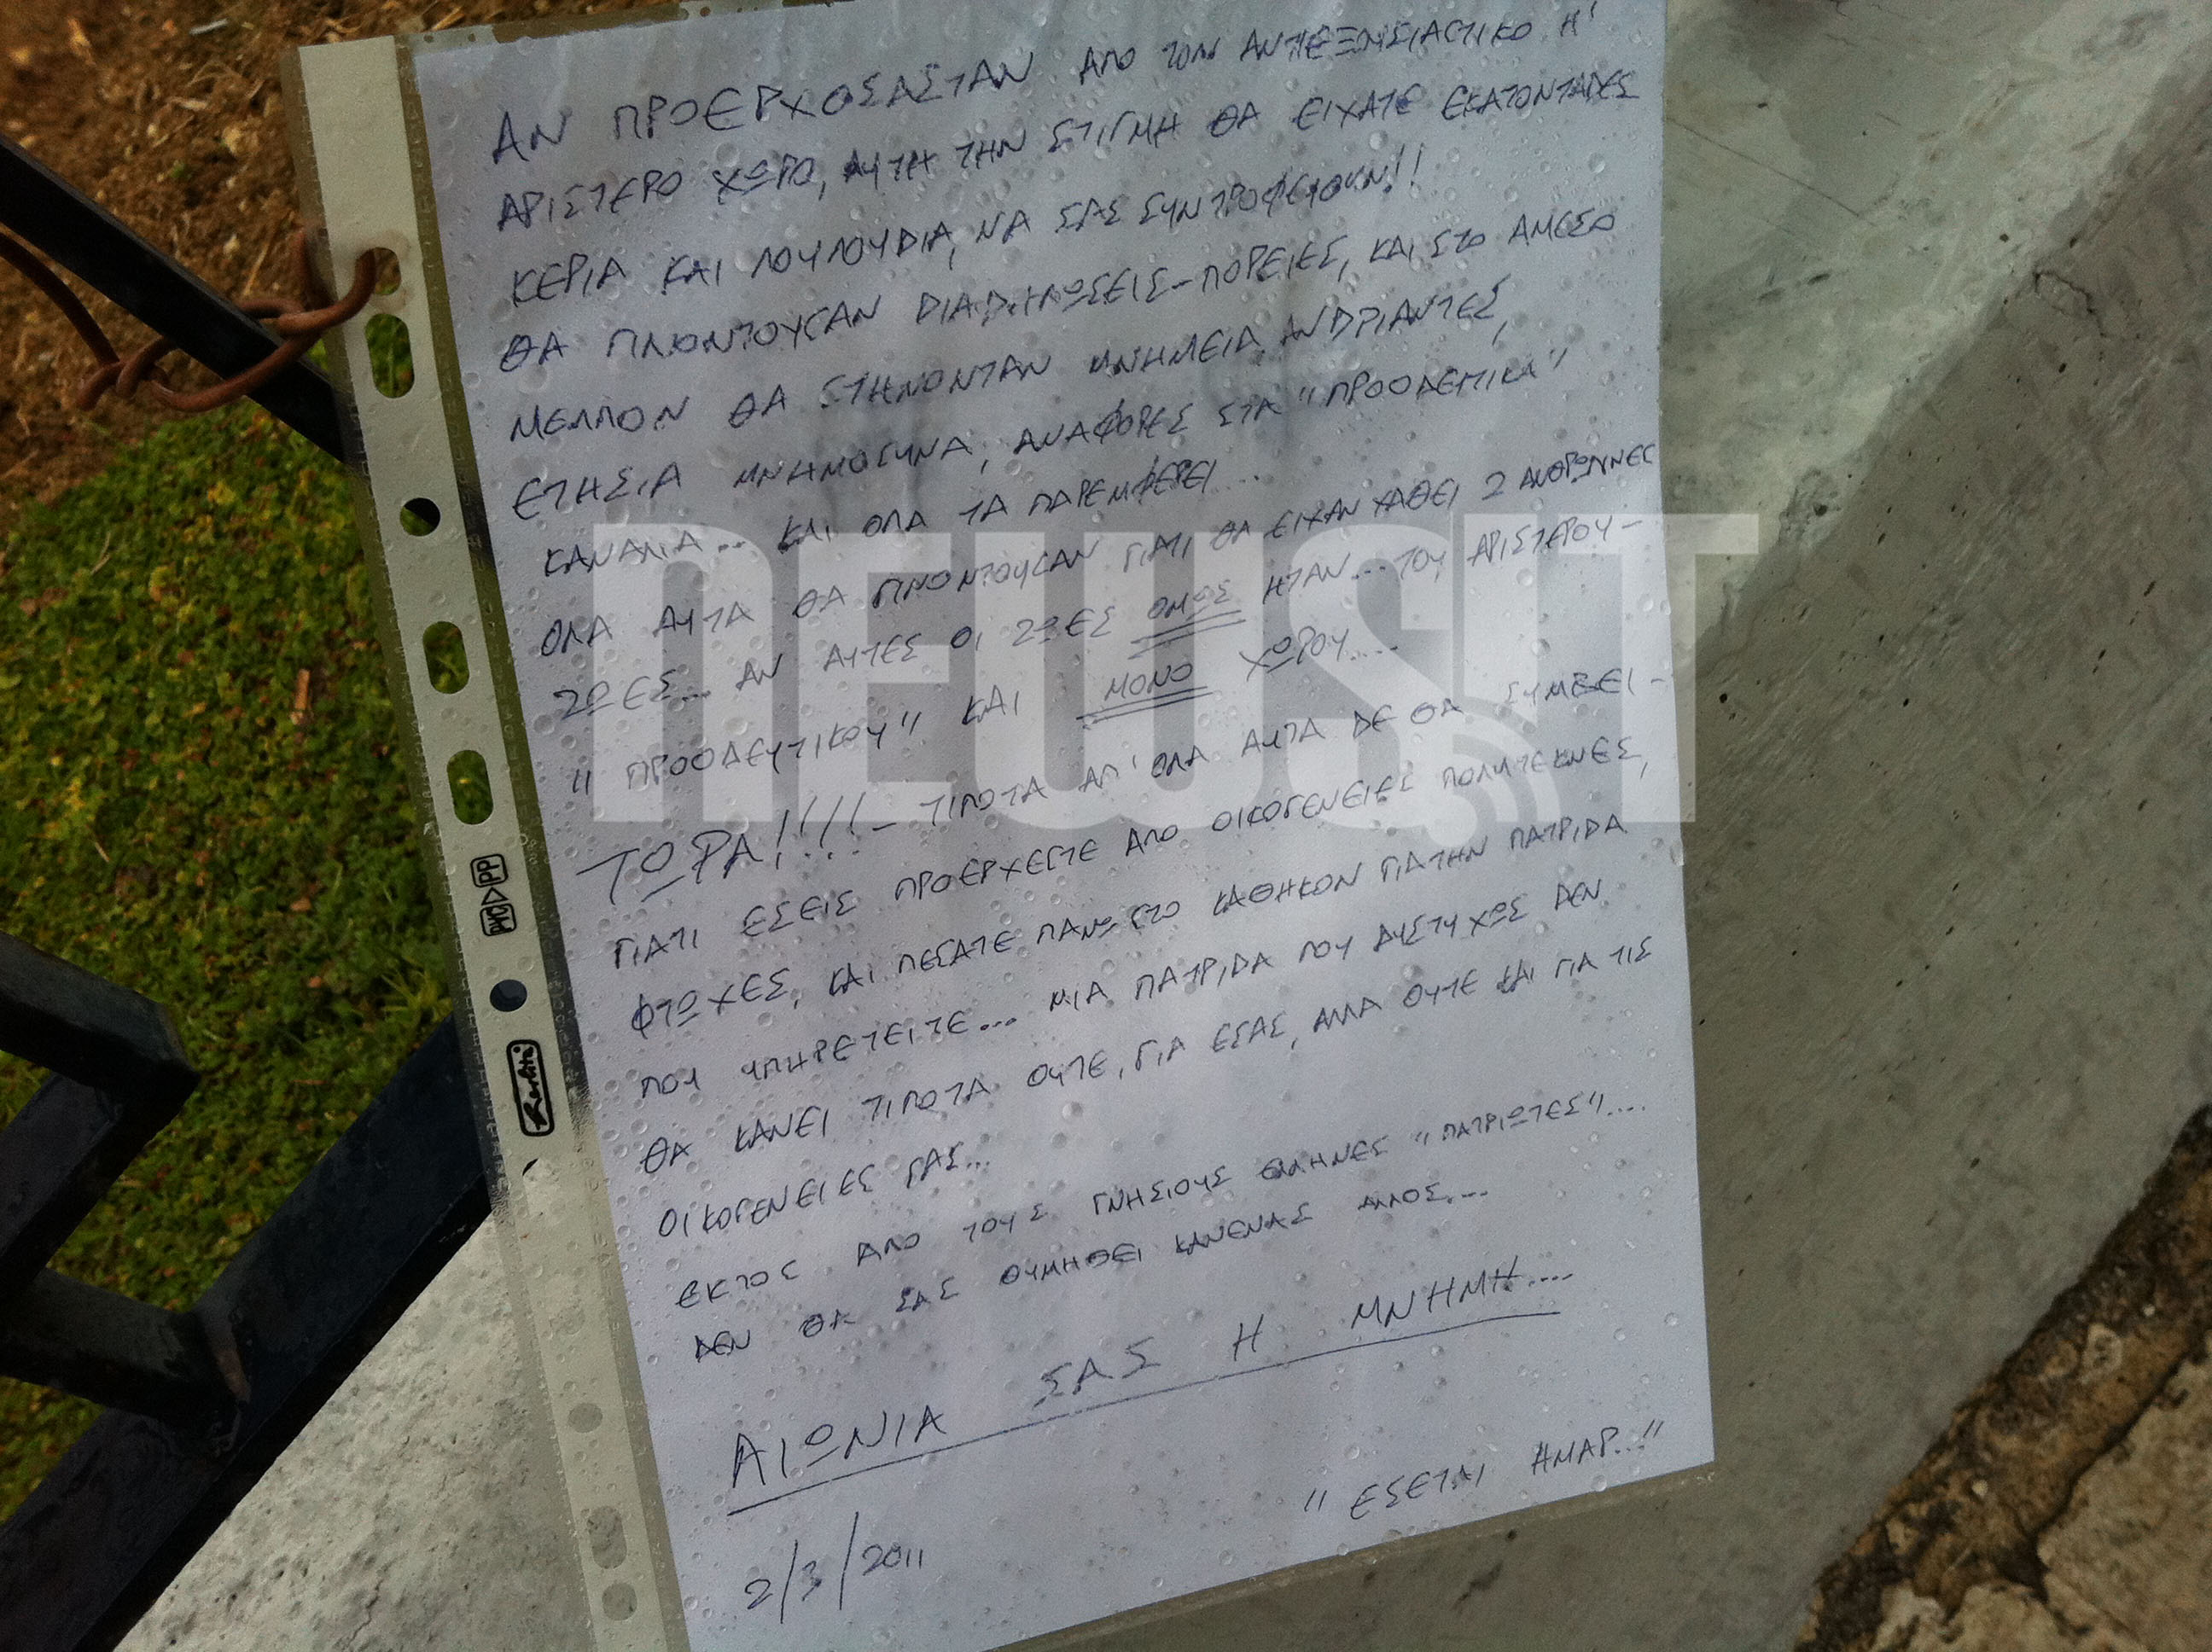 ΑΝ ΠΡΟΕΡΧΟΣΑΣΤΑΝ ΑΠΟ ΤΟΝ ΑΝΤΙΕΞΟΥΣΙΑΣΤΙΚΟ Η'
ΑΡΙΣΤΕΡΟ ΧΩΡΟ, ΑΥΤΗ ΤΗΝ ΣΤΙΓΜΗ ΘΑ ΕΙΧΑΤΕ ΕΚΑΤΟΝΤΑΔΕΣ
ΚΕΡΙΑ ΚΑΙ ΛΟΥΛΟΥΔΙΑ, ΝΑ ΣΑΣ ΣΥΝΤΡΟΦΕΥΟΥΝ!!
ΘΑ ΓΙΝΟΝΤΟΥΣΑΝ ΔΙΑΔΗΛΩΣΕΙΣ-ΠΟΡΕΙΕΣ, ΚΑΙ ΣΤΟ ΑΜΕΣΟ
ΜΕΛΛΟΝ ΘΑ ΣΤΗΝΟΝΤΑΝ ΜΝΗΜΕΙΑ, ΑΝΔΡΙΑΝΤΕΣ,
ΕΤΗΣΙΑ ΜΝΗΜΟΣΥΝΑ, ΑΝΑΦΟΡΕΣ ΣΤΑ "ΠΡΟΟΔΕΤΙΚΑ"
ΚΑΝΑΛΙΑ... ΚΑΙ ΟΛΑ ΤΑ ΠΑΡΕΜΦΕΡΕΙ...
ΟΛΑ ΑΥΤΑ ΘΑ ΓΙΝΟΝΤΟΥΣΑΝ ΓΙΑΤΙ ΘΑ ΕΙΧΑΝ ΧΑΘΕΙ 2 ΑΝΘΡΩΠΙΝΕΣ
ΖΩΕΣ... ΑΝ ΑΥΤΕΣ ΟΙ ΖΩΕΣ ΟΜΩΣ ΗΤΑΝ... ΤΟΥ ΑΡΙΣΤΕΡΟΥ-
"ΠΡΟΟΔΕΥΤΙΚΟΥ" ΚΑΙ ΜΟΝΟ ΧΩΡΟΥ....
ΤΩΡΑ!!!!- ΤΙΠΟΤΑ ΑΠ' ΟΛΑ ΑΥΤΑ ΔΕ ΘΑ ΣΥΜΒΕΙ-
ΓΙΑΤΙ ΕΣΕΙΣ ΠΡΟΕΡΧΕΣΤΕ ΑΠΟ ΟΙΚΟΓΕΝΕΙΕΣ ΠΟΛΥΤΕΚΝΕΣ,
ΦΤΩΧΕΣ, ΚΑΙ ΠΕΣΑΤΕ ΠΑΝΩ ΣΤΟ ΚΑΘΗΚΟΝ ΓΙΑ ΤΗΝ ΠΑΤΡΙΔΑ
ΠΟΥ ΥΠΗΡΕΤΕΙΤΕ... ΜΙΑ ΠΑΤΡΙΔΑ ΠΟΥ ΔΥΣΤΥΧΩΣ ΔΕΝ
ΘΑ ΚΑΝΕΙ ΤΙΠΟΤΑ ΟΥΤΕ, ΓΙΑ ΕΣΑΣ, ΑΛΛΑ ΟΥΤΕ ΚΑΙ ΓΙΑ ΤΙΣ
ΟΙΚΟΓΕΝΕΙΕΣ ΣΑΣ...
ΕΚΤΟΣ ΑΠΟ ΤΟΥΣ ΓΝΗΣΙΟΥΣ ΕΛΛΗΝΕΣ "ΠΑΤΡΙΩΤΕΣ"....
ΔΕΝ ΘΑ ΣΑΣ ΘΥΜΗΘΕΙ ΚΑΝΕΝΑΣ ΑΛΛΟΣ....
ΑΙΩΝΙΑ ΣΑΣ Η ΜΝΗΜΗ....
"ΕΣΕΤΑΙ ΗΜΑΡ..."
2/3/2011
NEWSIT
PP